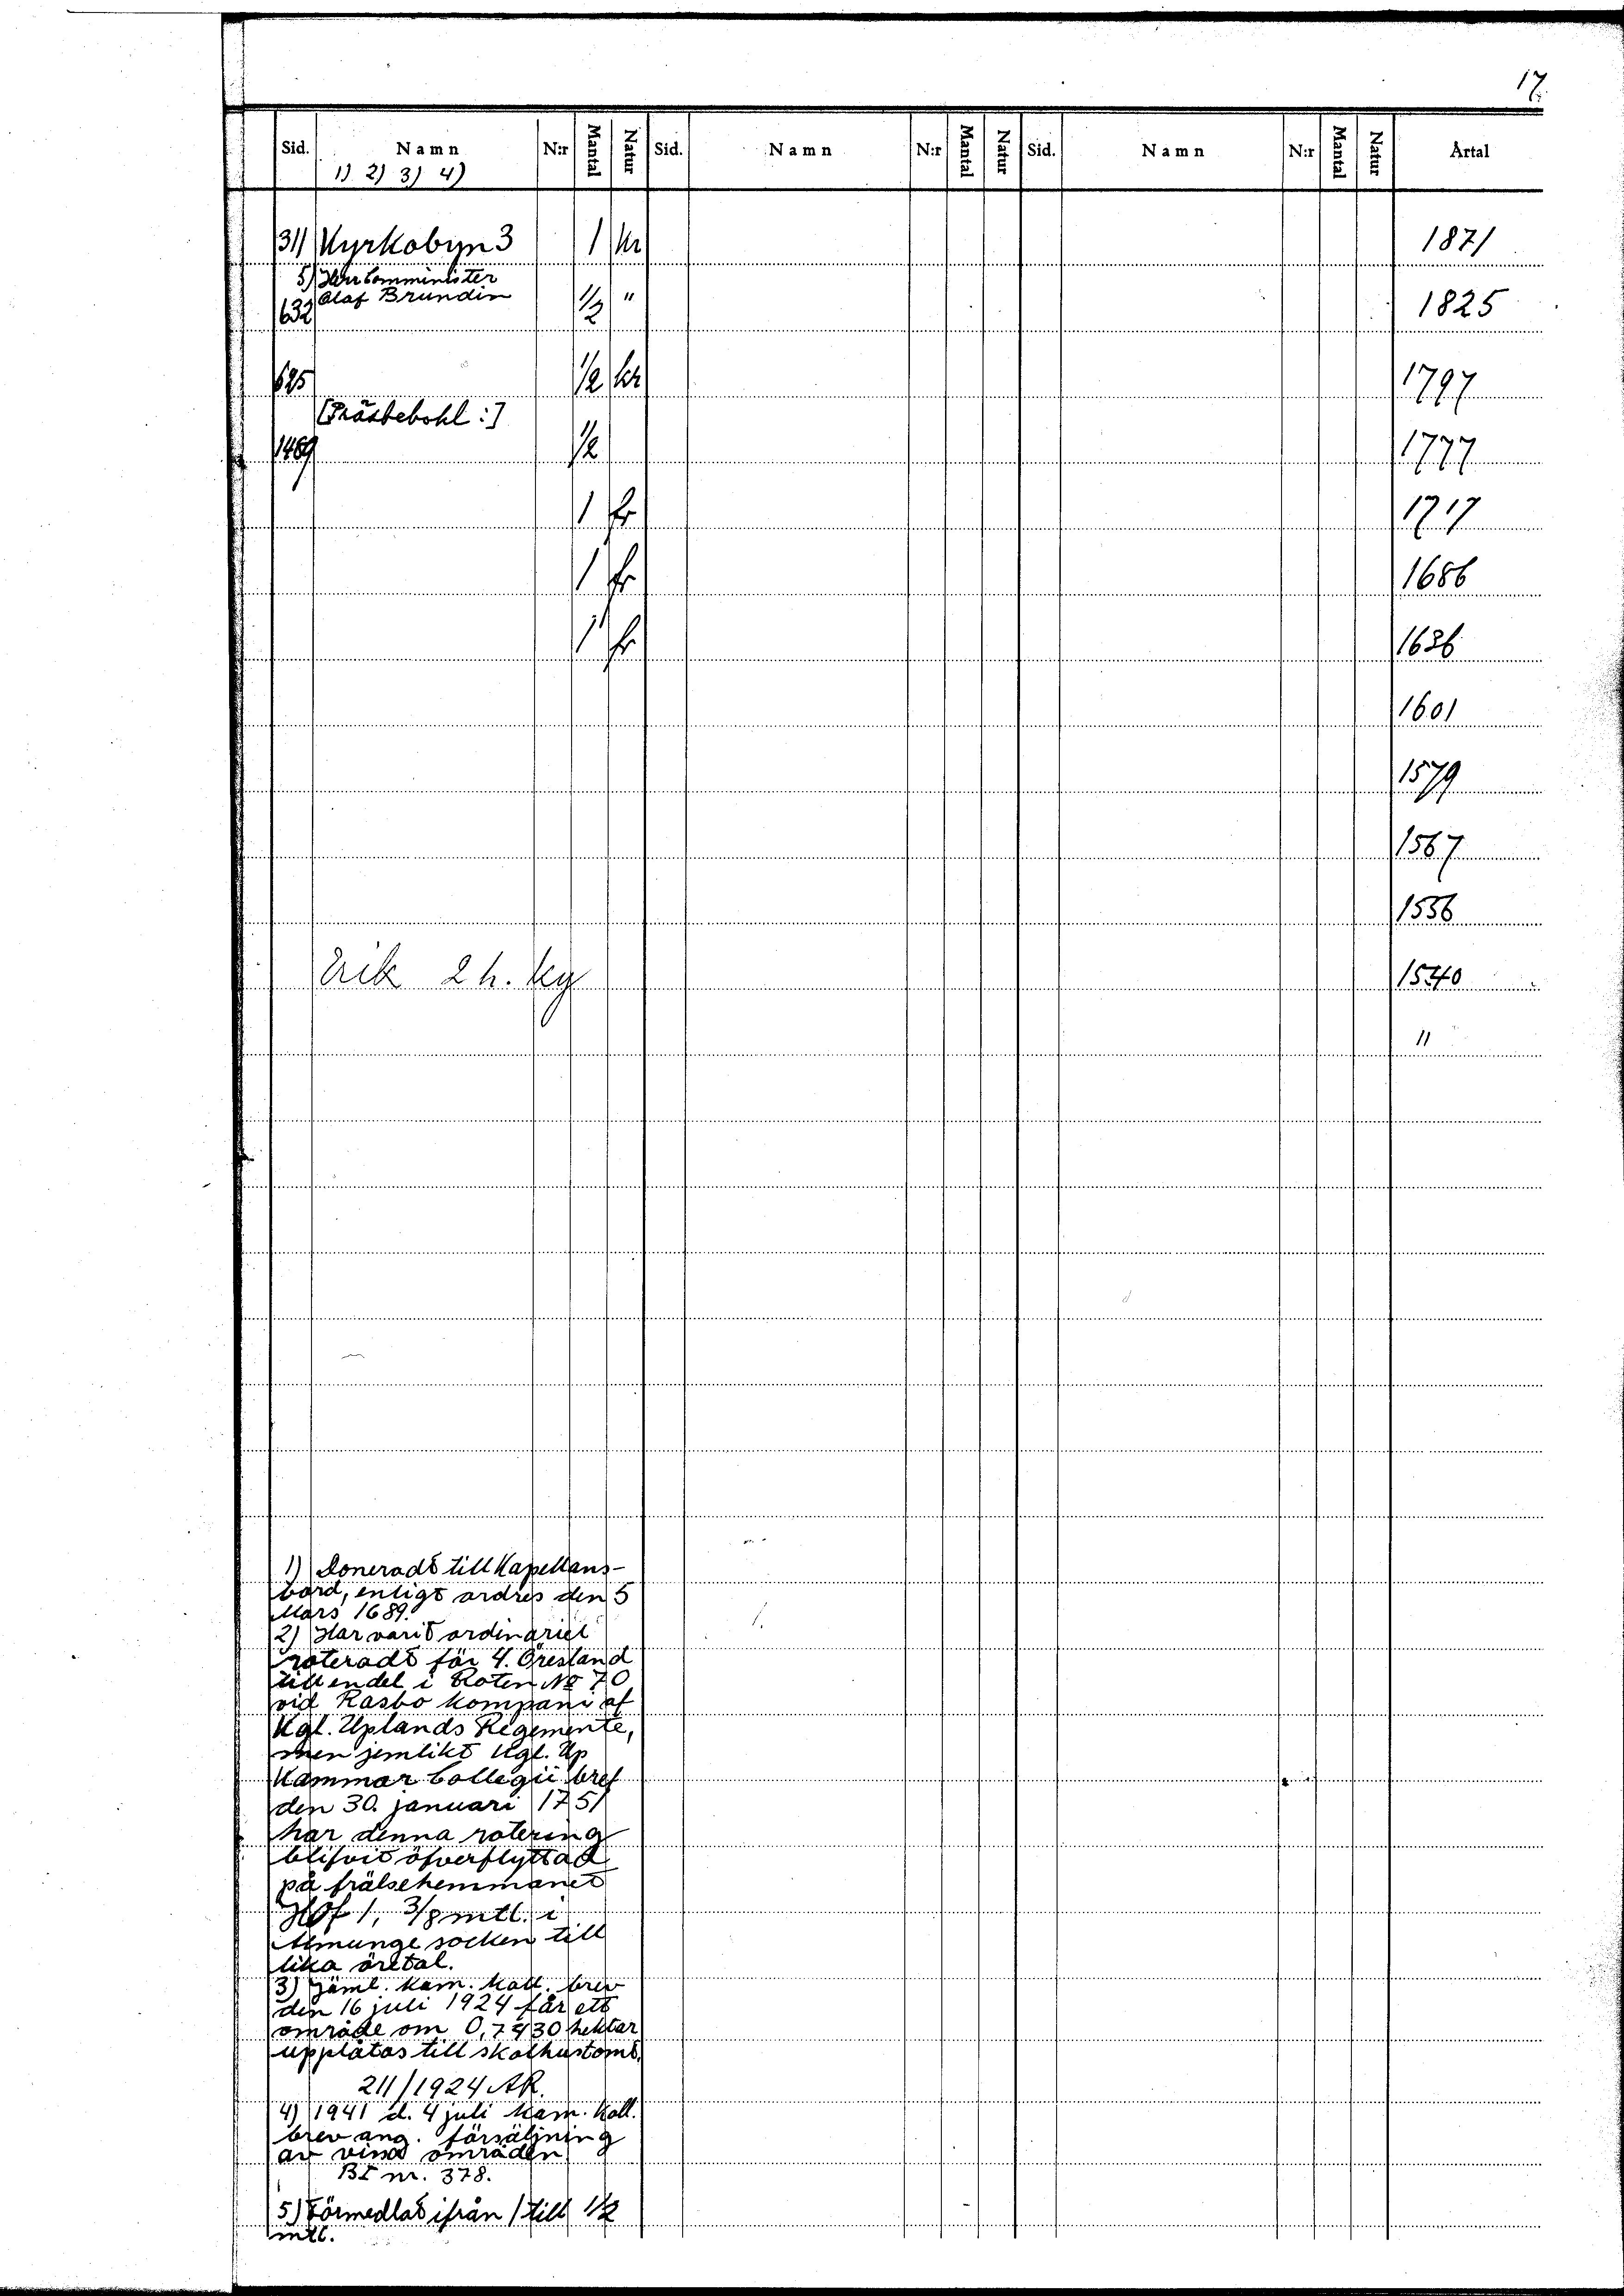 17.
Sid. Namn N:r Mantal Natur Sid. Namn N:r Mantal Natur Sid. Namn N:r Mantal Natur Årtal
1) 2) 3) 4)
311 Kyrkobyn 3 1 Kr 1871
5) Herr Comminister
632 Olaf Brundin 1/2 " 1825
625 1/2 kr 1797
[Prästebohl:]
1469 1/2 1777
1 fr 1717
1 fr 1686
1 fr 1636
1601
1579
1567
1556
Erik 2 h. ky 1540
"
1) Doneradt till Kapellans-
bord, enligt ordres den 5
Mars 1689.
2) Har varit ordinariet
roteradt för 4. Öresland
till en del i Roten No 70
vid Rasbo kompani af
Kgl. Uplands Regemente,
men jemlikt Kgl. Up
Kammar Collegii bref
den 30. januari 1751
har denna rotering
blifvit öfverflyttad
på frälsehemmanet
Hof 1, 3/8 mtl. i
Almunge socken till
lika öretal.
3) Jäml. Kam. Koll. brev
den 16 juli 1924 får ett
område om 0,7430 hektar
upplåtas till skolhustomt.
211/1924 AR.
4) 1941 d. 4 juli Kam. Koll.
brev ang. försäljning
av visst områden
BI nr. 378.
5) Förmedlat ifrån 1 till 1/2
mtl.